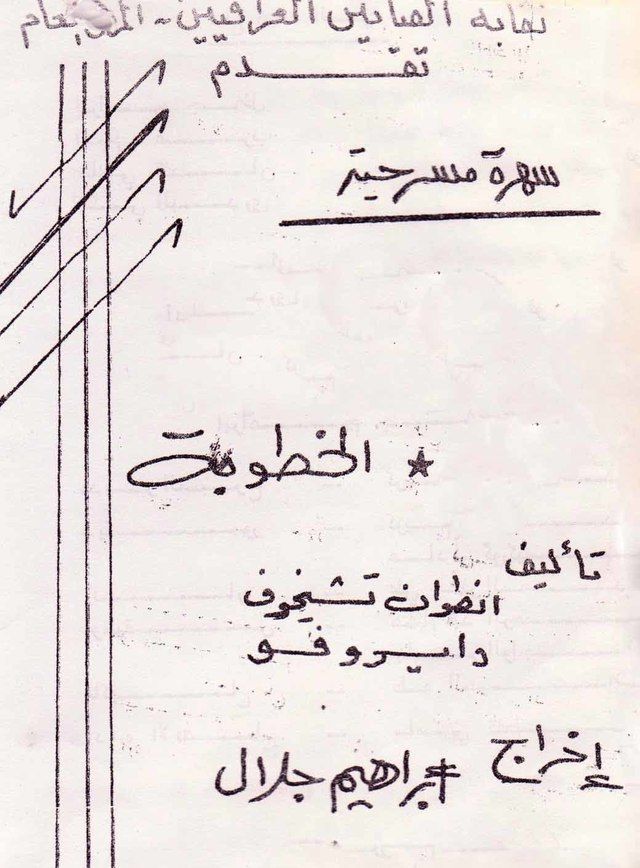 نقابة الفنانين العراقيين - المركز العام
تقدم
سهرة مسرحية
★ الخطوبة
تأليف
انطوان تشيخوف
دايروفو
إخراج ابراهيم جلال